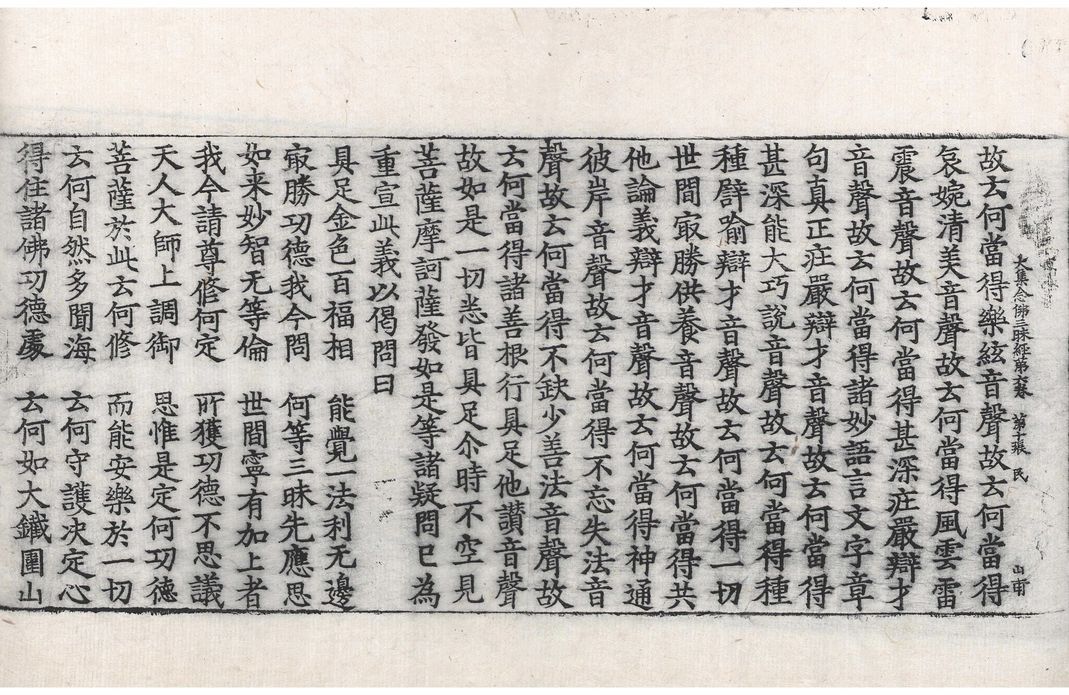 大集念佛三昧經第六卷 第十張 民 山甫
故云何當得樂絃音聲故云何當得
哀婉清美音聲故云何當得風雲雷
震音聲故云何當得甚深疘嚴辯才
音聲故云何當得諸妙語言文字章
句真正疘嚴辯才音聲故云何當得
甚深能大巧說音聲故云何當得種
種譬喻辯才音聲故云何當得一切
世間㝡勝供養音聲故云何當得共
他論義辯才音聲故云何當得神通
彼岸音聲故云何當得不忘失法音
聲故云何當得不缺少善法音聲故
云何當得諸善根行具足他讃音聲
故如是一切悉皆具足尒時不空見
菩薩摩訶薩發如是等諸疑問已為
重宣此義以偈問曰
具足金色百福相 能覺一法利无邊
㝡勝功德我今問 何等三昧先應思
如来妙智无等倫 世間寧有加上者
我今請尊修何定 所獲功德不思議
天人大師上調御 思惟是定何功德
菩薩於此云何修 而能安樂於一切
云何自然多聞海 云何守護决定心
得住諸佛功德處 云何如大鐵圍山